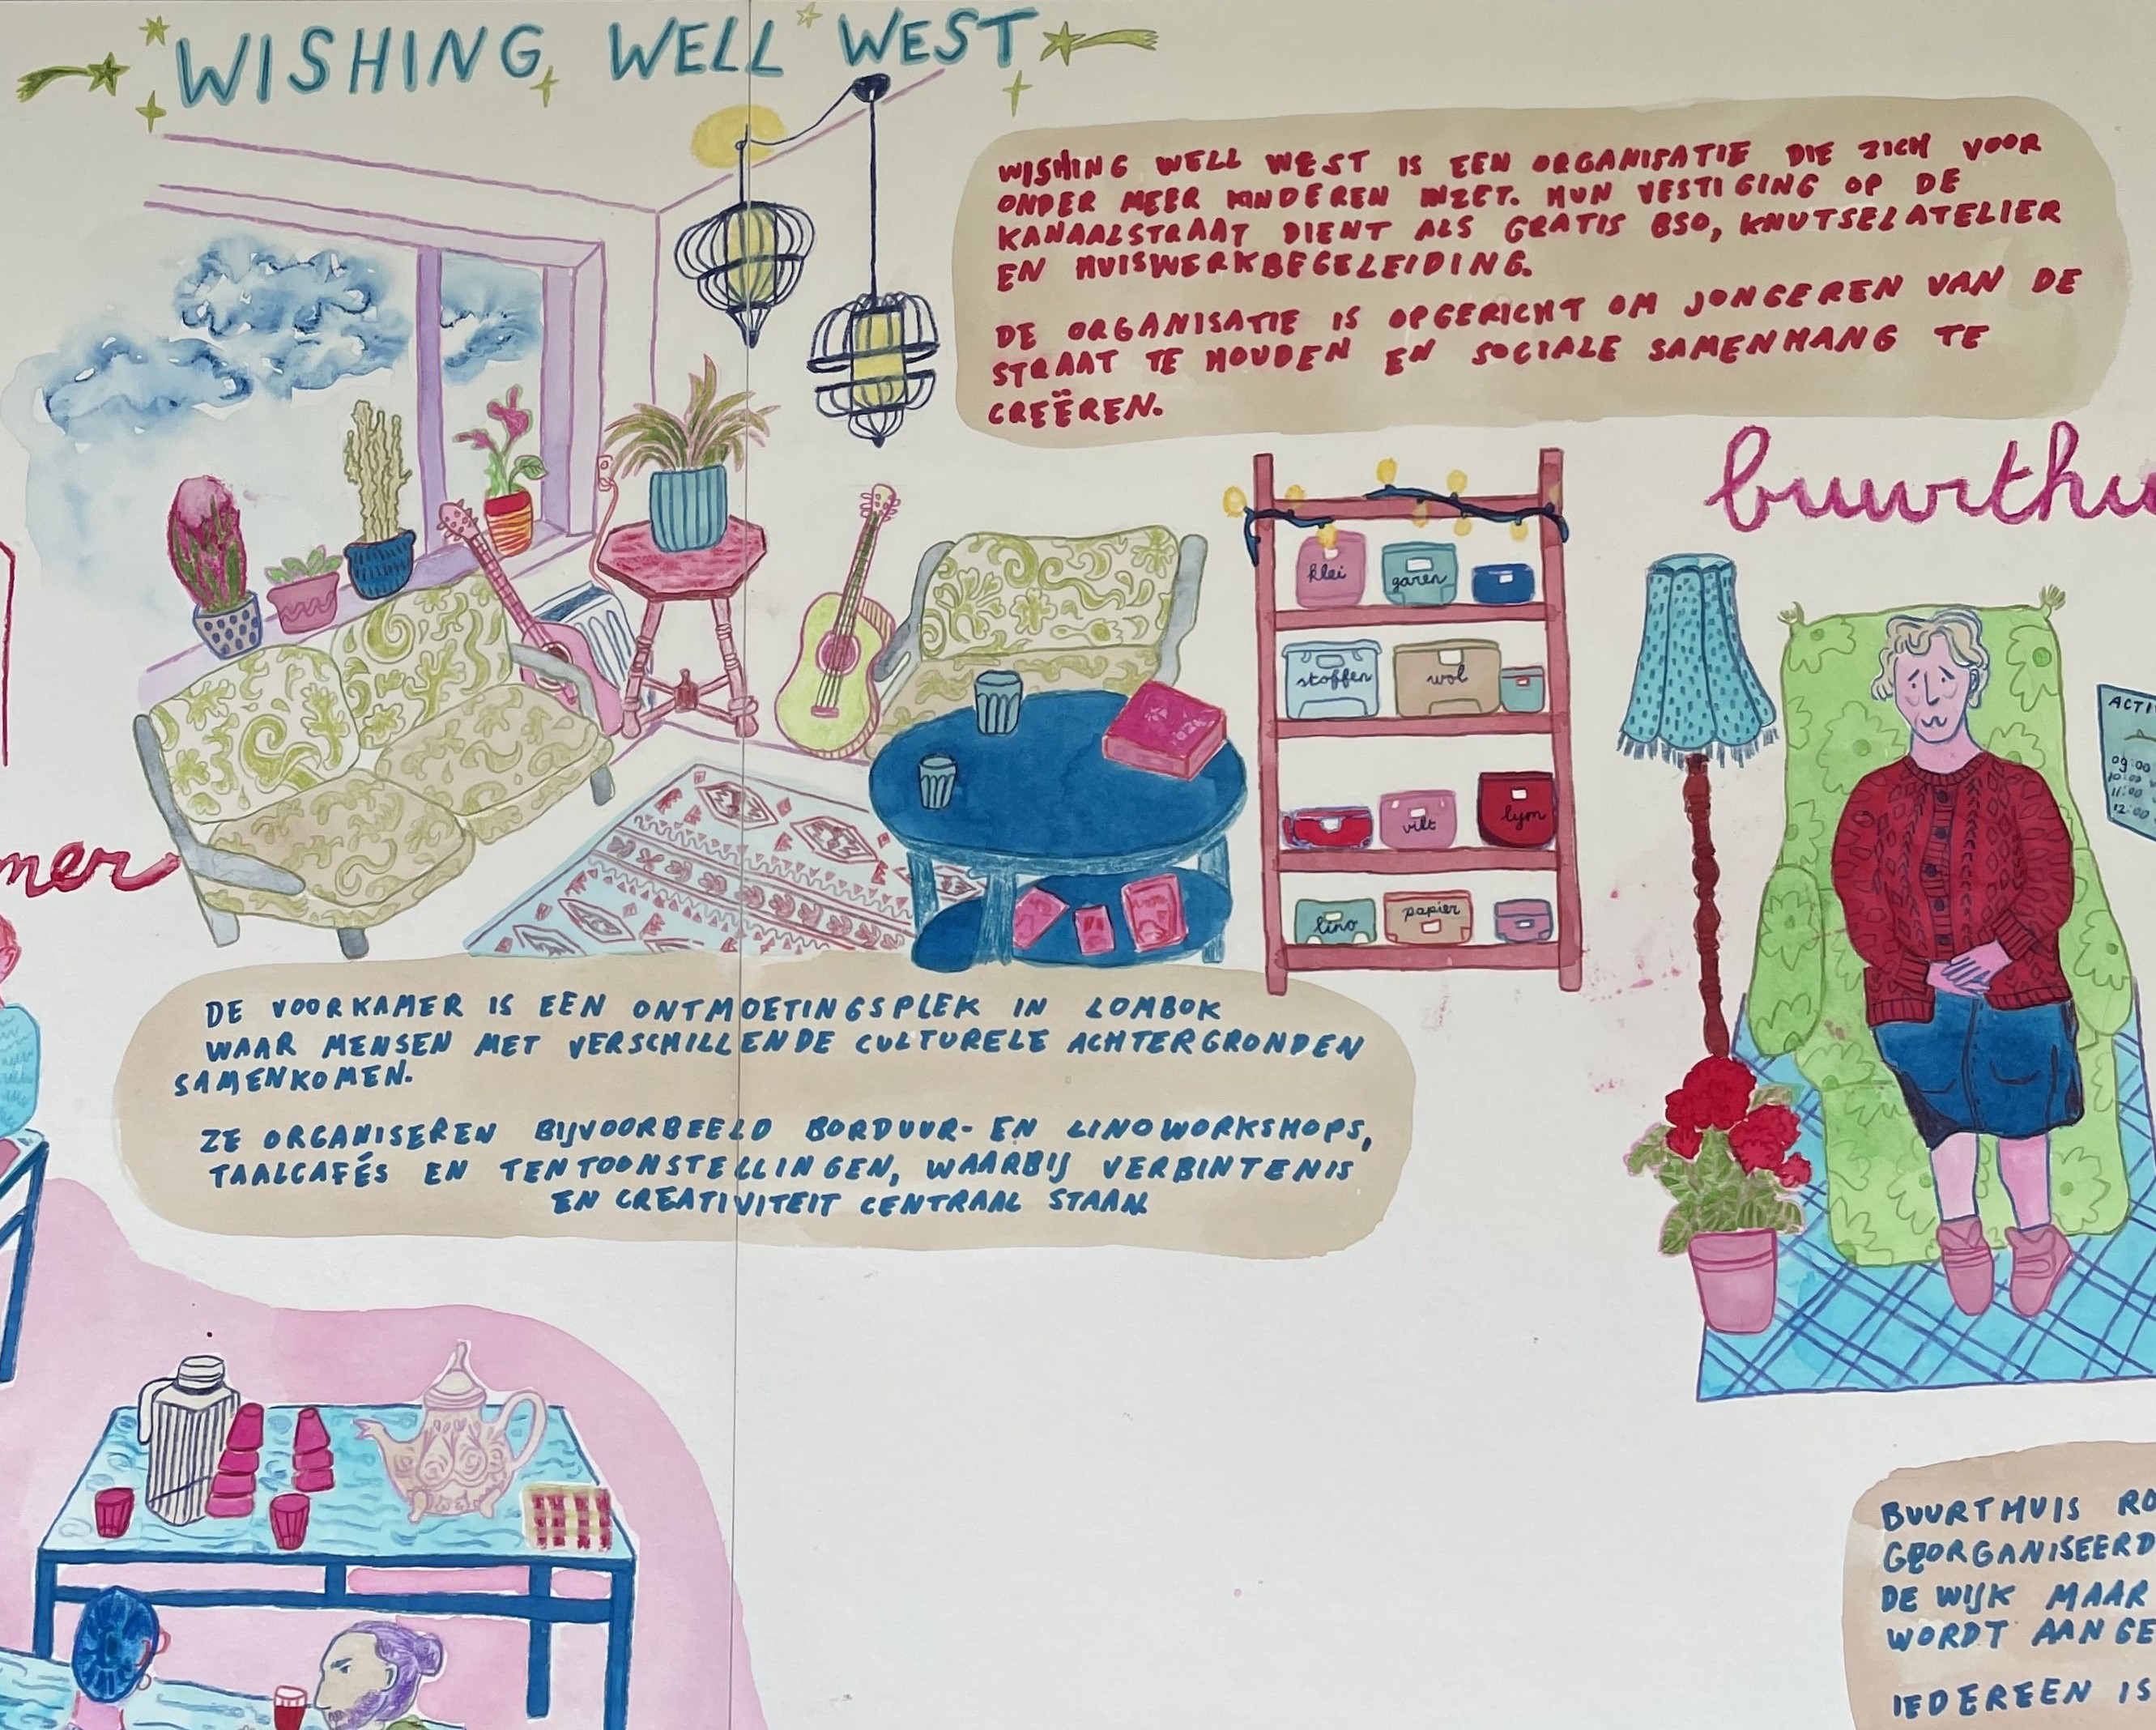 WISHING WELL WEST
WISHING WELL WEST IS EEN ORGANISATIE DIE ZICH VOOR
ONDER MEER KINDEREN INZET. HUN VESTIGING OP DE
KANAALSTRAAT DIENT ALS GRATIS BSO, KNUTSELATELIER
EN HUISWERKBEGELEIDING.
DE ORGANISATIE IS OPGERICHT OM JONGEREN VAN DE
STRAAT TE HOUDEN EN SOCIALE SAMENHANG TE
CREËREN.
buurthu
klei
garen
stoffen
wol
vilt
lijm
lino
papier
ACTI
09:00
10:00
11:00
12:00
mer
DE VOORKAMER IS EEN ONTMOETINGSPLEK IN LOMBOK
WAAR MENSEN MET VERSCHILLENDE CULTURELE ACHTERGRONDEN
SAMENKOMEN.
ZE ORGANISEREN BIJVOORBEELD BORDUUR- EN LINOWORKSHOPS,
TAALCAFÉS EN TENTOONSTELLINGEN, WAARBIJ VERBINTENIS
EN CREATIVITEIT CENTRAAL STAAN.
BUURTHUIS RO
GEORGANISEERD
DE WIJK MAAR
WORDT AANGE
IEDEREEN IS